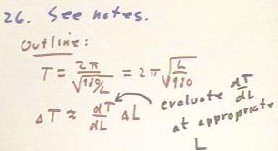 26. See notes.
Outline:
T = 2π/√(980/L) = 2π √(L/980)
ΔT ≈ dT/dL ΔL
evaluate dT/dL
at appropriate
L